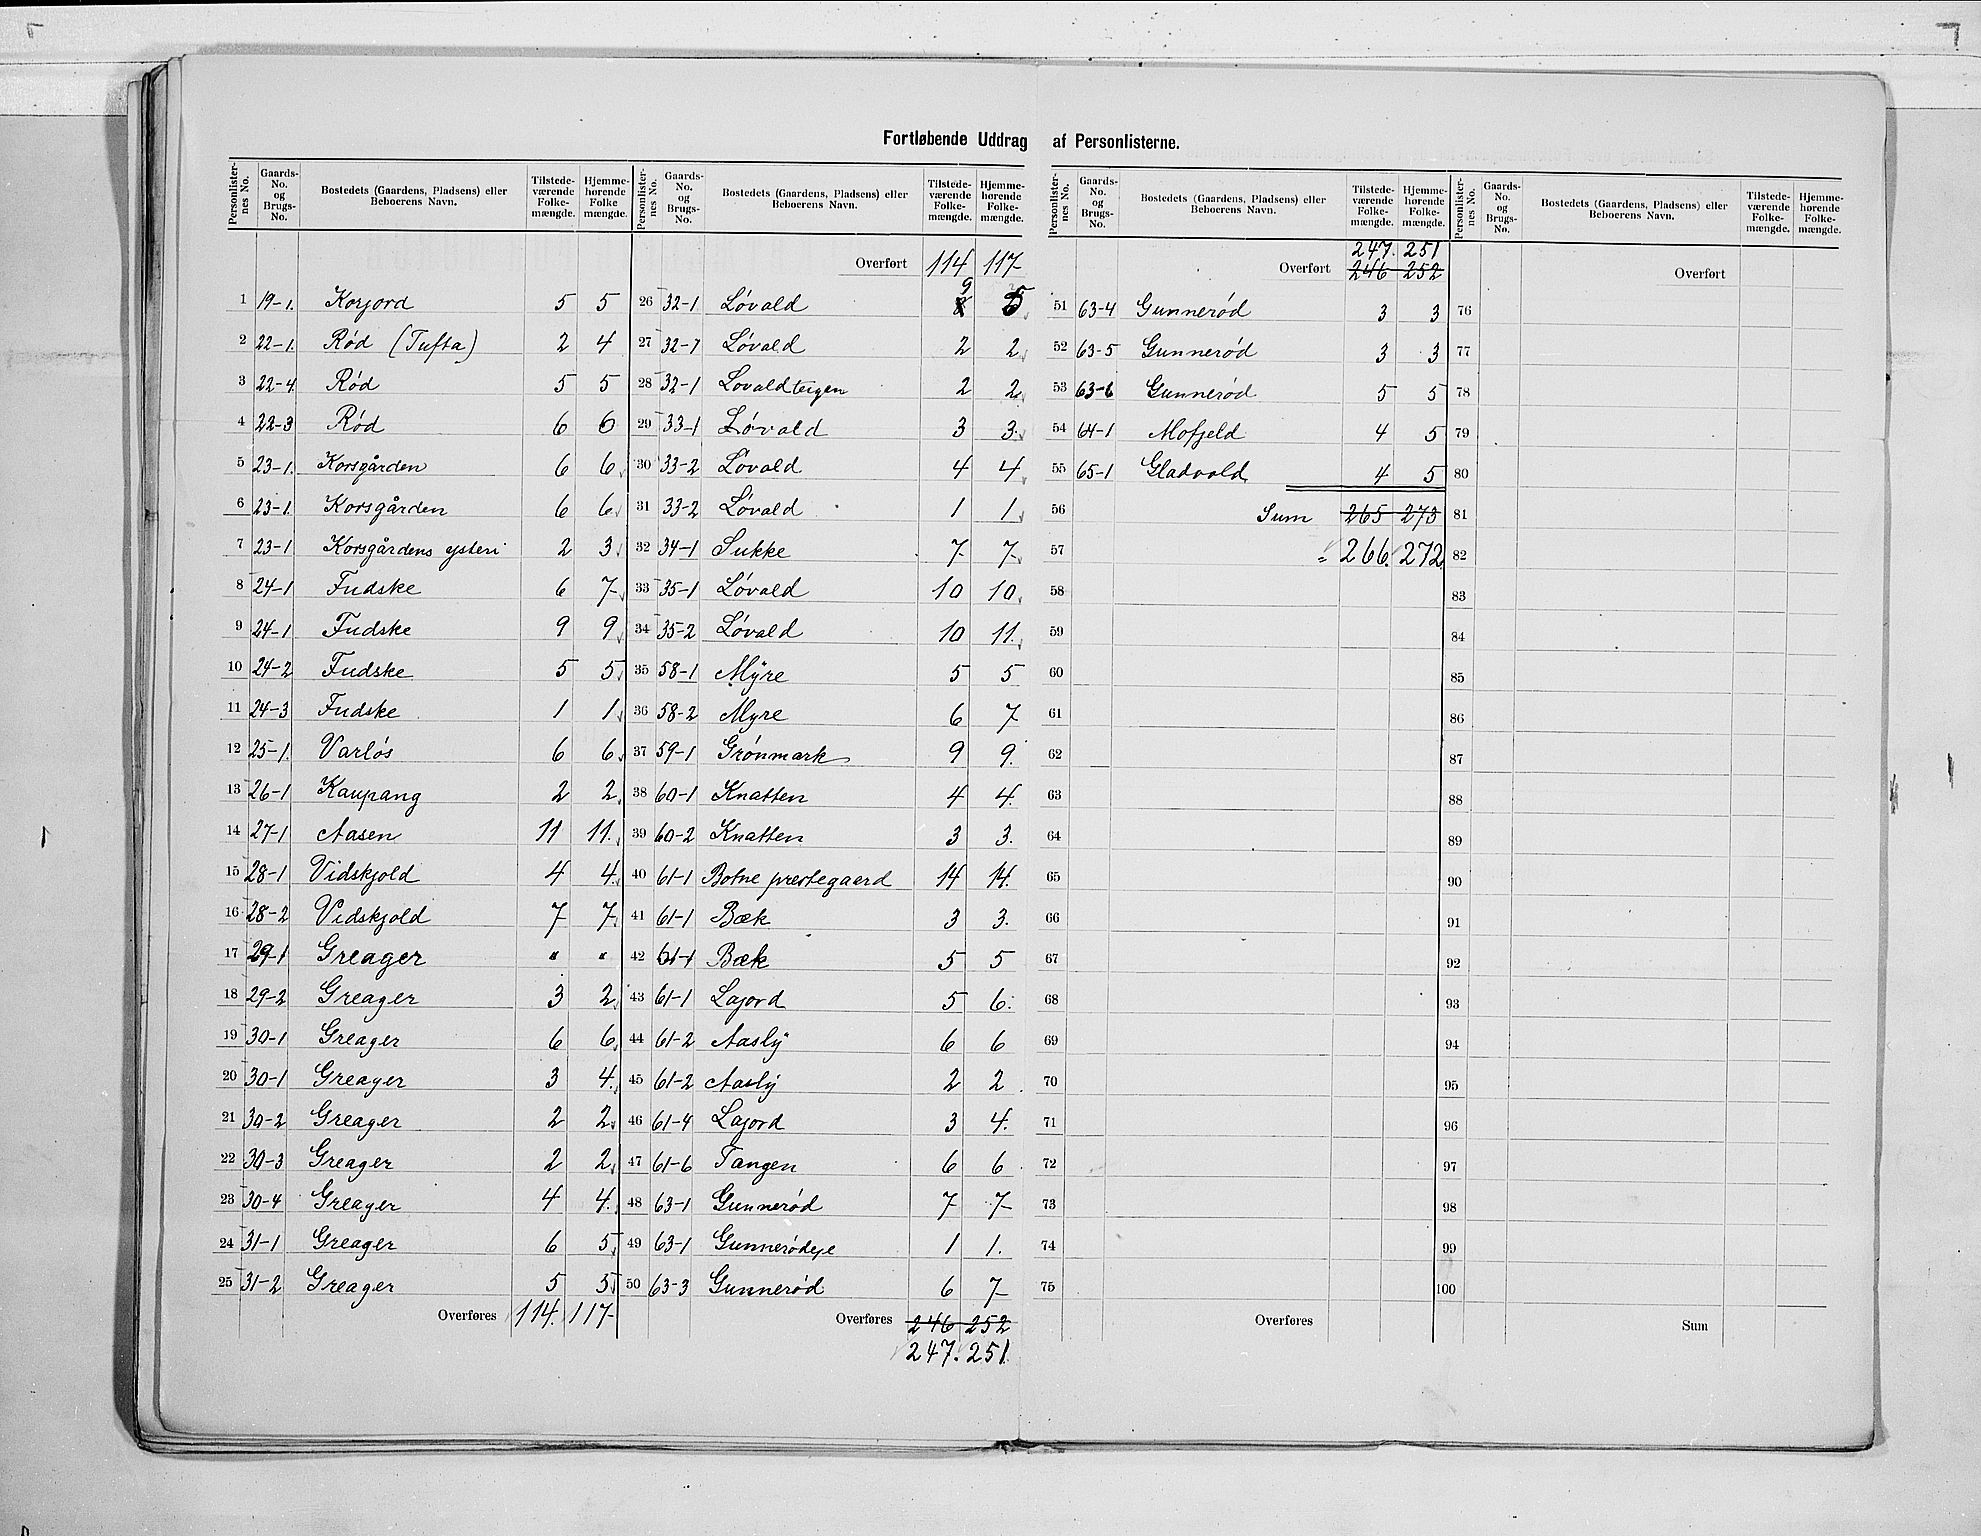 Fortløbende Uddrag af Personlisterne.
Personlister-nes No. Gaards-No. og Brugs-No. Bostedets (Gaardens, Pladsens) eller Beboerens Navn. Tilstede-værende Folke-mængde. Hjemme-hørende Folke mængde.
1 19-1. Korjord 5 5
2 22-1. Rød (Tufta) 2 4
3 22-4. Rød 5 5
4 22-3 Rød 6 6
5 23-1. Korsgården 6 6
6 23-1. Korsgården 6 6
7 23-1 Korsgårdens ysteri 2 3
8 24-1 Fudske 6 7
9 24-1 Fudske 9 9
10 24-2 Fudske 5 5
11 24-3 Fudske 1 1
12 25-1. Varløs 6 6
13 26-1 Kaupang 2 2
14 27-1 Aasen 11 11.
15 28-1 Vidskjold 4 4
16 28-2 Vidskjold 7 7
17 29-1 Greager " "
18 29-2 Greager 3 2
19 30-1 Greager 6 6
20 30-1 Greager 3 4.
21 30-2 Greager 2 2
22 30-3 Greager 2 2
23 30-4 Greager 4 4.
24 31-1 Greager 6 5
25 31-2 Greager 5 5
Overføres 114. 117
Personlister-nes No. Gaards-No. og Brugs-No. Bostedets (Gaardens, Pladsens) eller Beboerens Navn. Tilstede-værende Folke-mængde. Hjemme-hørende Folke-mængde.
Overført 114 117
26 32-1 Løvald 9 5
27 32-1 Løvald 2 2
28 32-1 Løvaldteigen 2 2
29 33-1 Løvald 3 3.
30 33-2 Løvald 4 4
31 33-2 Løvald 1 1
32 34-1 Sukke 7 7
33 35-1 Løvald 10 10
34 35-2 Løvald 10 11.
35 58-1 Myre 5 5
36 58-2 Myre 6 7
37 59-1 Grønmark 9 9.
38 60-1 Knatten 4 4.
39 60-2 Knatten 3 3.
40 61-1 Botne prestegaard 14 14.
41 61-1 Bæk 3 3.
42 61-1 Bæk 5 5
43 61-1 Lajord 5 6.
44 61-2 Aasly 6 6
45 61-2 Aasly 2 2
46 61-4 Lajord 3 4.
47 61-6 Tangen 6 6
48 63-1 Gunnerød 7 7
49 63-1 Gunnerødeje 1 1.
50 63-3 Gunnerød 6 7
Overføres 246 252
247. 251.
Personlister-nes No. Gaards-No. og Brugs-No. Bostedets (Gaardens, Pladsens) eller Beboerens Navn. Tilstede-værende Folke-mængde. Hjemme-hørende Folke-mængde.
247. 251
Overført 246 252
51 63-4 Gunnerød 3 3
52 63-5 Gunnerød 3 3
53 63-6 Gunnerød 5 5
54 64-1 Mofjeld 4 5
55 65-1 Gladvold 4 5
56 Sum 265 273
57 = 266. 272
58
59
60
61
62
63
64
65
66
67
68
69
70
71
72
73
74
75
Overføres
Personlister-nes No. Gaards-No. og Brugs-No. Bostedets (Gaardens, Pladsens) eller Beboerens Navn. Tilstede-værende Folke-mængde. Hjemme-hørende Folke-mængde.
Overført
76
77
78
79
80
81
82
83
84
85
86
87
88
89
90
91
92
93
94
95
96
97
98
99
100
Sum